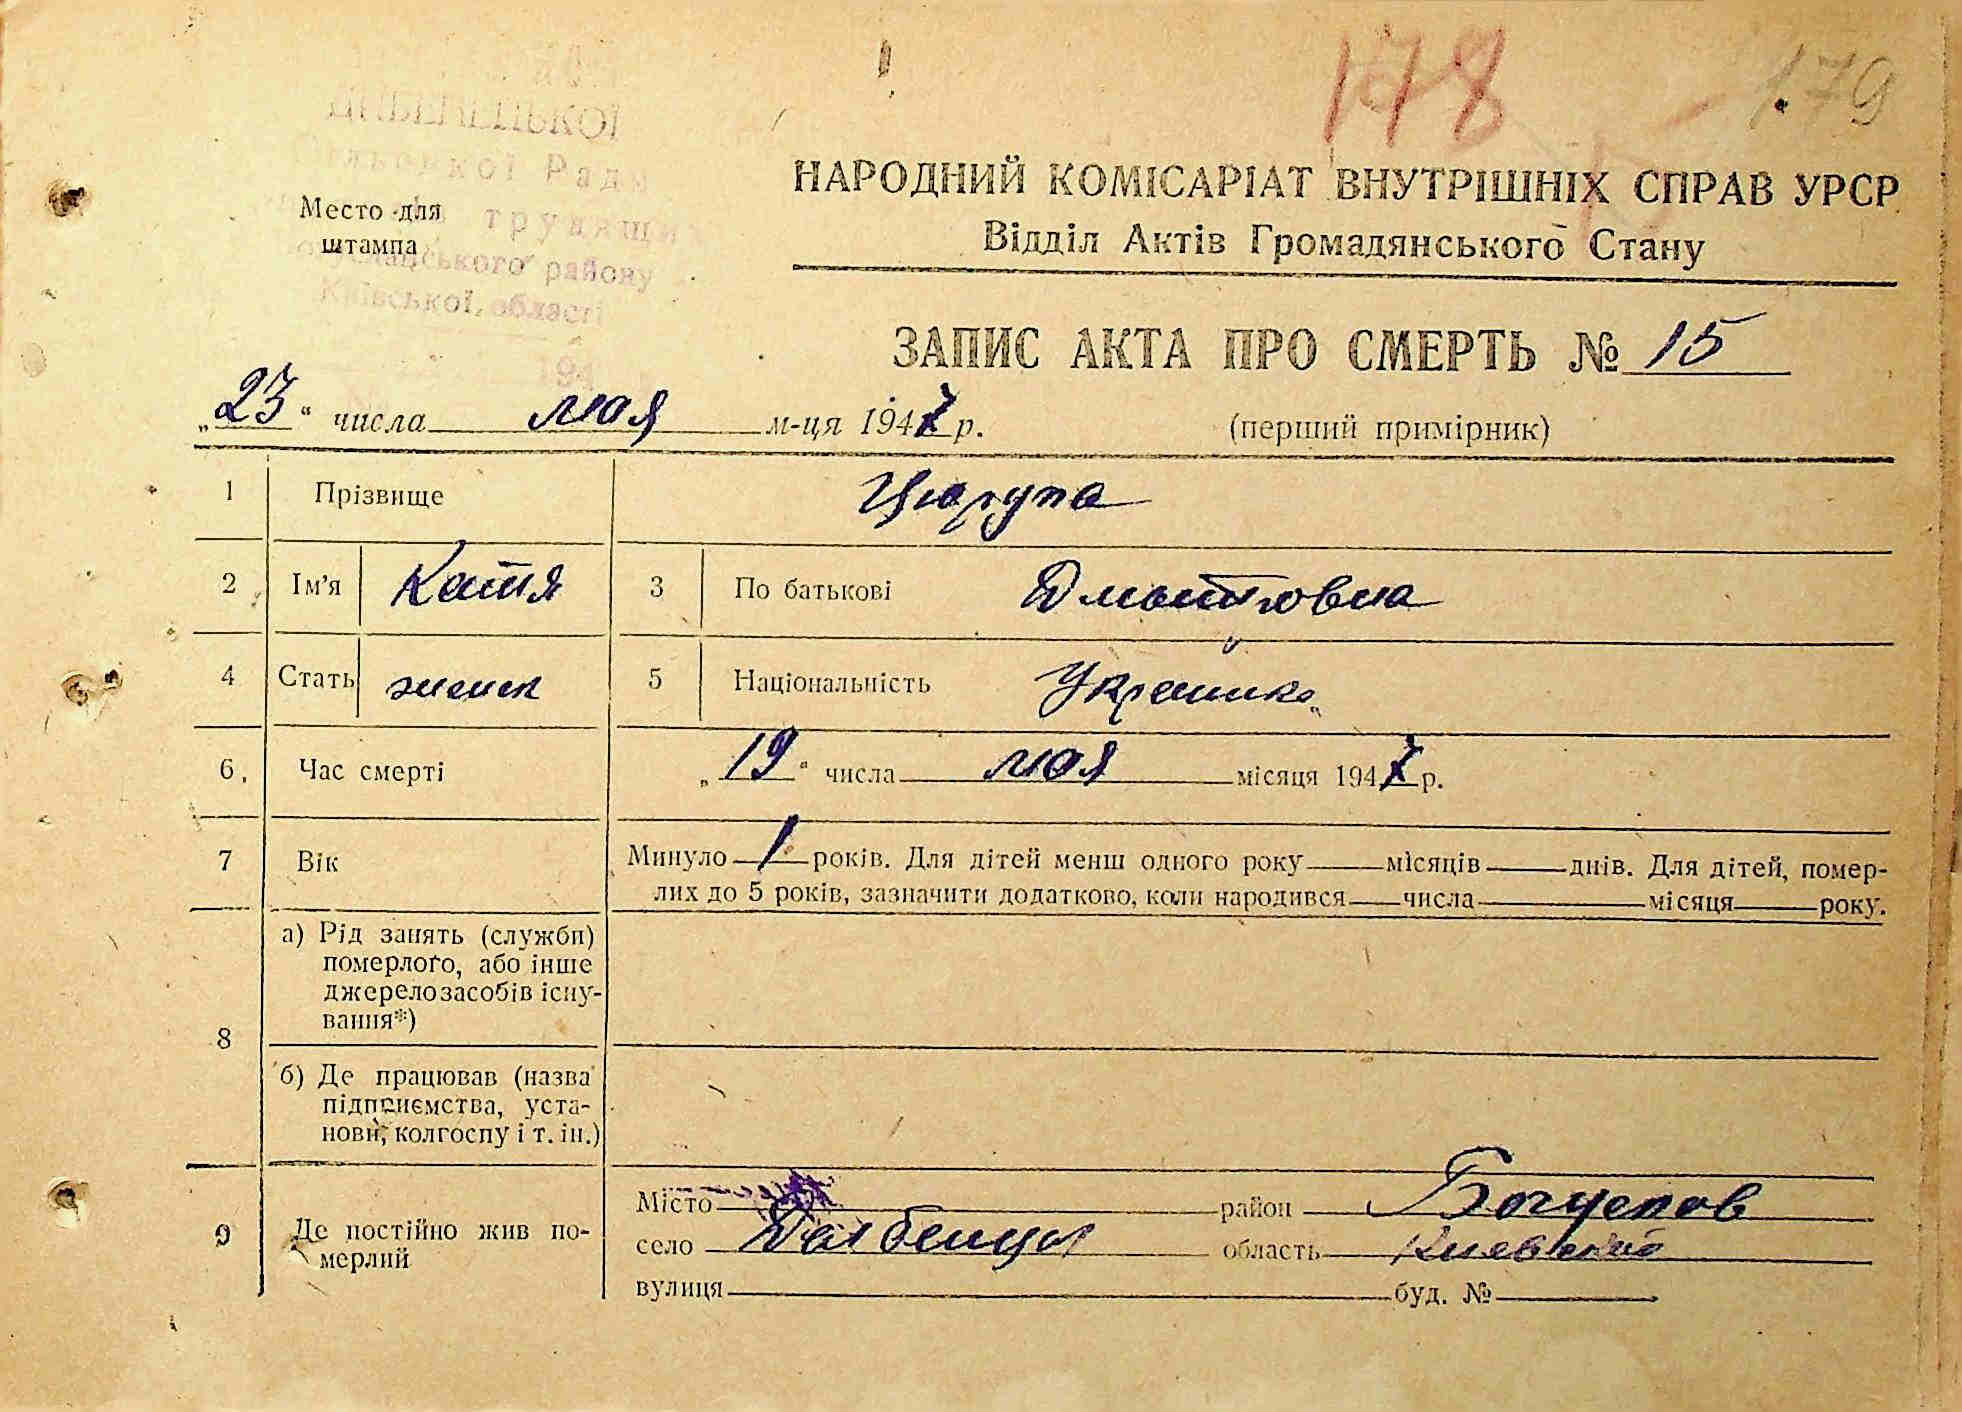 178
179
Ради
Место для
штампа
трудящих
району
Київської області
194
НАРОДНИЙ КОМІСАРІАТ ВНУТРІШНІХ СПРАВ УРСР
Відділ Актів Громадянського Стану
ЗАПИС АКТА ПРО СМЕРТЬ № 15
„23“ числа мая м-ця 1947 р.
(перший примірник)
1 Прізвище Цюрупа
2 Ім’я Катя 3 По батькові
4 Стать женск 5 Національність Украинка
6, Час смерті „19“ числа мая місяця 1947 р.
7 Вік Минуло 1 років. Для дітей менш одного року місяців днів. Для дітей, помер-
лих до 5 років, зазначити додатково, коли народився числа місяця року.
8
а) Рід занять (служби)
померлого, або інше
джерело засобів існу-
вання*)
б) Де працював (назва
підприємства, уста-
нови, колгоспу і т. ін.)
9 Де постійно жив по-
мерлий
Місто район
село область
вулиця буд. №